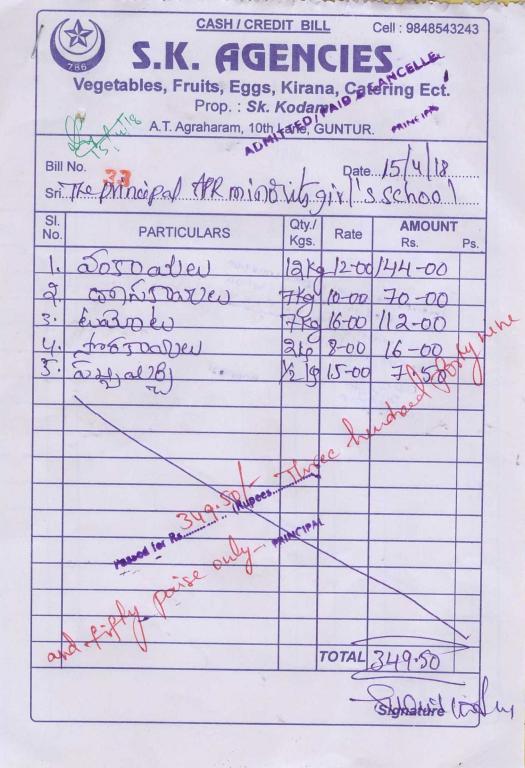 CASH / CREDIT BILL
Cell : 9848543243
786
S.K. AGENCIES
Vegetables, Fruits, Eggs, Kirana, Catering Ect.
Prop. : Sk. Kodam
A.T. Agraharam, 10th Lane, GUNTUR.
ADMITTED/PAID & CANCELLE
PRINCIPAL
Bill No. 33
Date 15/4/18
Sri The principal APR minority girl's school
Sl. No. PARTICULARS Qty./ Kgs. Rate AMOUNT Rs. Ps.
1. వంకాయలు 12kg 12-00 144-00
2. దోసకాయలు 7kg 10-00 70-00
3. టమోటో 7kg 16-00 112-00
4. 2kg 8-00 16-00
5. 1/2 kg 15-00 7-50
Passed for Rs. 349.50/- (Rupees Three hundred forty nine
and fifty paise only
PRINCIPAL
TOTAL 349.50
Signature